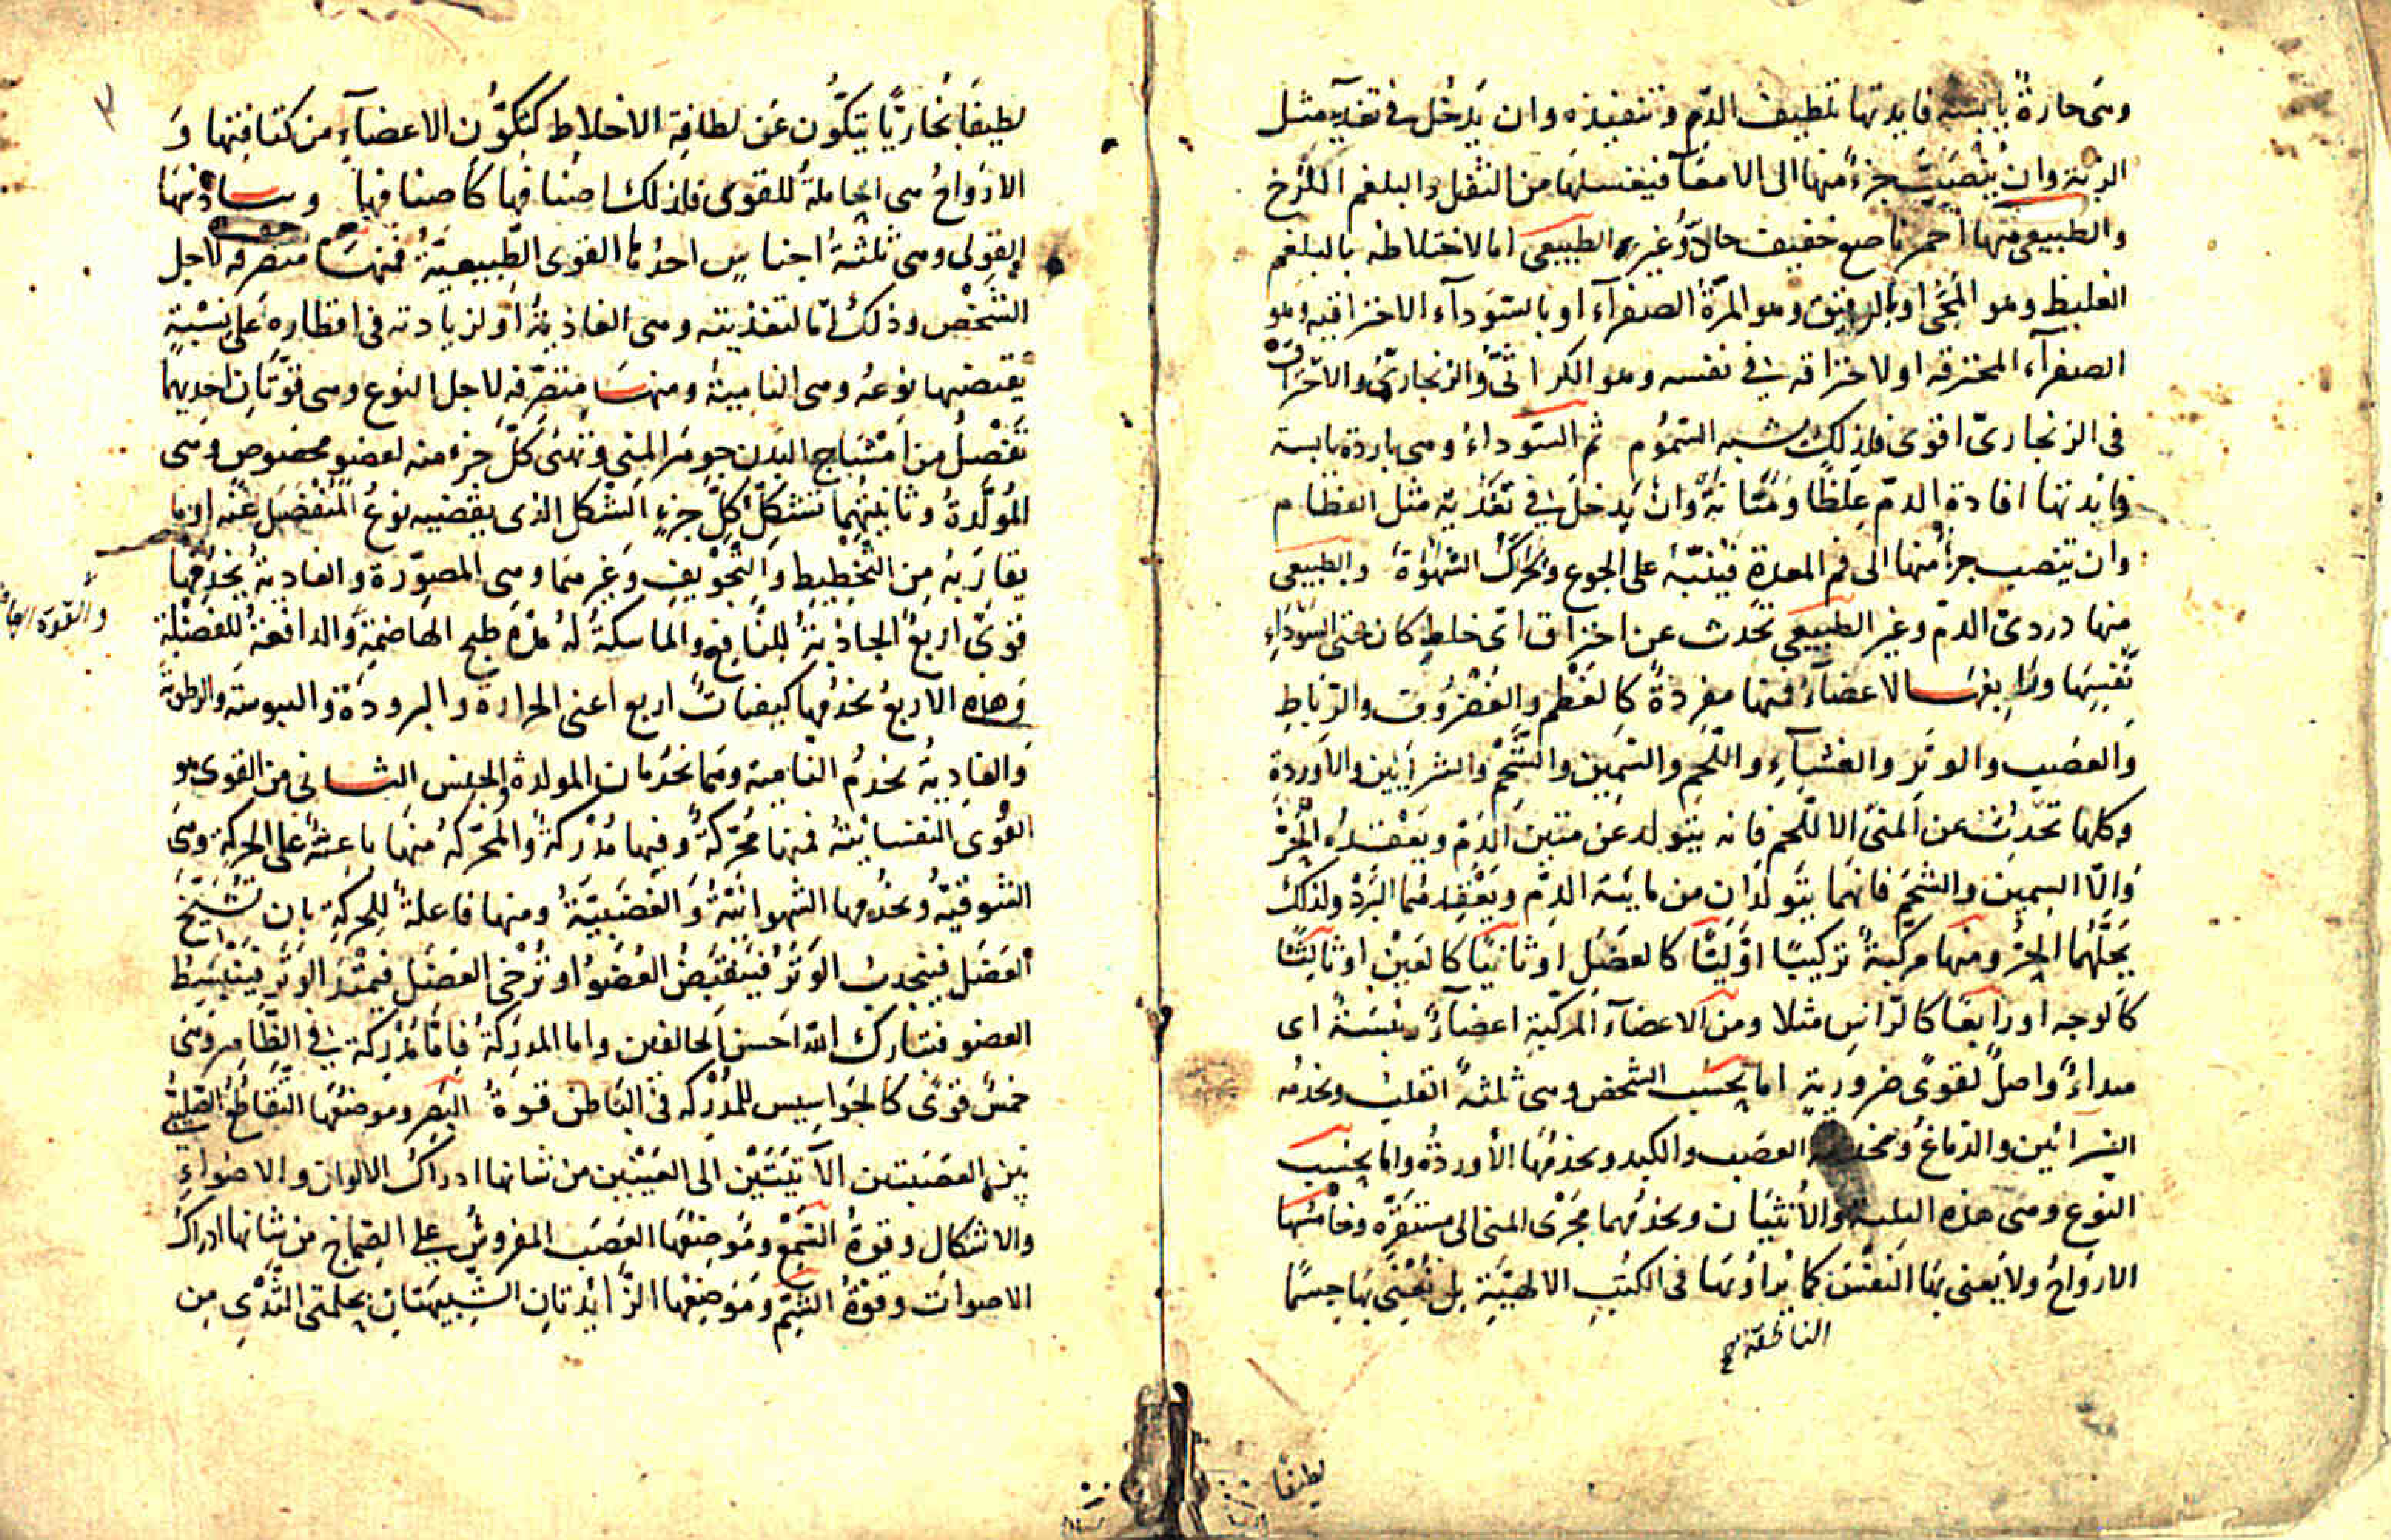 وهى حارة يابسة فايدتها تلطيف الدم و تنفيذه وان يدخل فى تغذية مثل
الرئة وان ينصبّ جزء منها الى الامعآ فيغسلها من الثفل والبلغم اللزج
والطبيعى منها احمر ناصع خفيف حادّ وغير الطبيعى اما لاختلاطه بالبلغم
الغليظ وهو المحّى او بالرقيق وهو المرّة الصفرآء او بالسّودآء الاحتراقيه وهو
الصفرآء المحترقه او لاحتراقه فى نفسه وهو الكراثىّ والزنجارىّ والاحتراق
فى الزنجارىّ اقوى فلذلك شبه السّموم ثم السّوداء وهى باردة يابسة
فائدتها افادة الدمّ غلظا ومتانة وان يدخل فى تغذية مثل العظام
وان ينصب جزأ منها الى فم المعدة فينبّه على الجوع ويحرّك الشهوة والطبيعى
منها دردىّ الدمّ وغير الطبيعى تحدث عن احتراق اىّ خلط كان حتى السّوداء
نفسها ورابعها الاعضآء فمنها مفردة كالعظم والغضروف والرّباط
والعصب والوتر والغشآء واللّحم والسّمين والشّحم والشرائين والاوردة
وكلها تحدث عن المنىّ الا اللّحم فانه يتولد عن متين الدّم ويعقده الحرّ
والّا السمين والشحم فانهما يتولدان من مايّة الدّم ويعقدهما البرد ولذلك
يحلّهما الحرّ ومنها مركبة تركيبًا اوّليّا كالعضل او ثانيًا كالعين او ثالثًا
كالوجه او رابعًا كالرّاس مثلا ومن الاعضآء المركّبة اعضآء رئيسة اى
مبداء واصل لقوى ضرورية اما بحسب الشخص وهى ثلثة القلب ويخدمه
الشرائين والدّماغ ويخدمه العصب والكبد ويخدمها الأوردة واما بحسب
النّوع وهى هذه الثلثة والأنثيان ويخدمهما مجرى المنى الى مستقرّه وخامسها
الارواح ولا يعنى بها النّفس كما يراد بها فى الكتب الالهيّة بل نعنى بها جسمًا
الناطقة صح
لطيفًا
لطيفًا بخاريًّا يتكوّن عن لطافة الاخلاط كتكوّن الاعضآء من كثافتها و
الارواح هى الحاملة للقوى فلذلك اصنافها كاصنافها وسادسها
القوى وهى ثلثة اجناس احدها القوى الطبيعيّة فمنها متصرفه لاجل
الشّخص وذلك امّا لتغذيته وهى الغاذية او لزيادته فى اقطاره على نسبة
يقتضيها نوعه وهى النامية ومنها متصرّفه لاجل النوع وهى قوّتان احديهما
تفصل من امشاج البدن جوهر المنى وتهيّئ كلّ جزء منه لعضو مخصوص وهى
المولّدة وثانيتهما تشكّل كلّ جزء الشكل الذى يقتضيه نوع المنفصل عنه او ما
يقاربه من التّخطيط والتّجويف وغيرهما وهى المصوّرة والغاذية يخدمها
قوى اربع الجاذبة للنّافع والماسكة له مدّة طبخ الهاضمة والدافعة للفضلة
وهذه الاربع يخدمها كيفيات اربع اعنى الحرارة والبرودة واليبوسة والرطوبة
والغاذية تخدم النامية وهما تخدمان المولدة والجنس الثانى من القوى هو
القوى النفسانيّة فمنها محرّكة وفيها مدركة والمحرّكة منها باعثة على الحركة وهى
الشوقيّه ويخدمها الشهوانيّة والغضبيّة ومنها فاعلة للحركة بان تشنّج
العضل فينجذب الوتر فينقبض العضو او ترخى العضل فيمتدّ الوتر فينبسط
العضو فتبارك الله احسن الخالقين واما المدركة فامّا مدركة فى الظّاهر وهى
خمس قوى كالجواسيس للمدركه فى الباطن قوة البصر وموضعها التّقاطع الصّليبى
بين العصبتين الآتيتين الى العينين من شانها ادراك الالوان والاضواء
والاشكال وقوة السّمع وموضعها العصب المفروش على الصّماخ من شانها ادراك
الاصوات وقوّة الشّم وموضعها الزّائدتان الشبيهتان بحلمتى الثّدى من